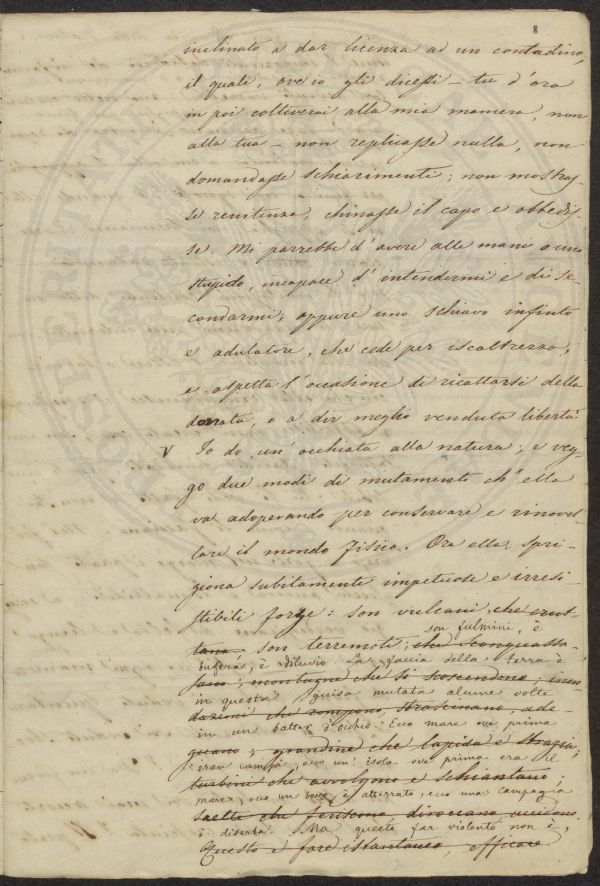 8
inclinato a dar licenza ad un contadino,
il quale, ove io gli dicessi – tu d'ora
in poi coltiverai alla mia maniera, non
alla tua – non replicasse nulla, non
domandasse schiarimenti; non mostras-
se renitenza, chinasse il capo e obbedis-
se. Mi parrebbe d'avere alle mani o uno
stupido, incapace d'intendermi e di se-
condarmi; oppure uno schiavo infinto
e adulatore, che cede per iscaltrezza,
e aspetta l'occasione di ricattarsi della
donata, o a dir meglio venduta libertà.
V Io do un'occhiata alla natura; e veg-
go due modi di mutamenti ch'ella
va adoperando per conservare e rinovel-
lare il mondo fisico. Ora ella spri-
giona subitamente impetuose e irresi-
stibili forze: son vulcani, che erut-
son fulmini, è
tano son terremoti, che sconquassa-
bufera, è diluvio. La faccia della terra è
no; montagne che si scoscendono, inon-
in questa guisa mutata alcune volte
dazioni che rompono, strascinano, ade-
in un batter d'occhio. Ecco mare ove prima
guano; grandine che lapida e strazia;
eran campi, ecco un'isola ove prima era il
turbini che avvolgono e schiantano;
mare, ecco un bosco è atterrato, ecco una campagna
saette che feriscono, diroccano, uccidono.
è diserta. Ma questo far violento non è,
Questo è fare istantaneo, efficace